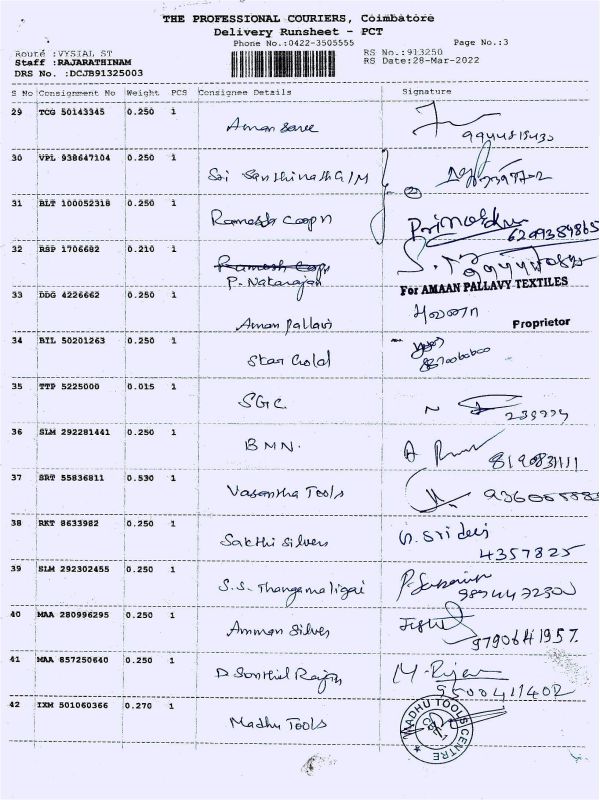 THE PROFESSIONAL COURIERS, Coimbatore
Delivery Runsheet - PCT
Phone No.:0422-3505555 Page No.:3
Route :VYSIAL ST RS No.:913250
Staff :RAJARATHINAM RS Date:28-Mar-2022
DRS No. :DCJB91325003
S No Consignment No Weight PCS Consignee Details Signature
29 TCG 50143345 0.250 1
Aman Saree
30 VPL 938647104 0.250 1
Sri Santhinath G/M
31 BLT 100052318 0.250 1
Ramesh Coop n
6209389865
32 RSP 1706682 0.210 1
Ramesh Coop
P. Natarajan
For AMAAN PALLAVY TEXTILES
33 DDG 4226662 0.250 1
Aman Pallavi
Proprietor
34 BIL 50201263 0.250 1
Star Gold
35 TTP 5225000 0.015 1
SGC
36 SLM 292281441 0.250 1
BMN.
8190831111
37 SRT 55836811 0.530 1
Vasantha Tools
38 RKT 8633982 0.250 1
Sakthi Silvers
G. Sri devi
4357825
39 SLM 292302455 0.250 1
S.S. Thangamaligai
40 MAA 280996295 0.250 1
Amman Silver
9790641957.
41 MAA 857250640 0.250 1
D Senthil Rajan
9500411402
42 IXM 501060366 0.270 1
Madhu Tools
MADHU TOOLS CENTRE